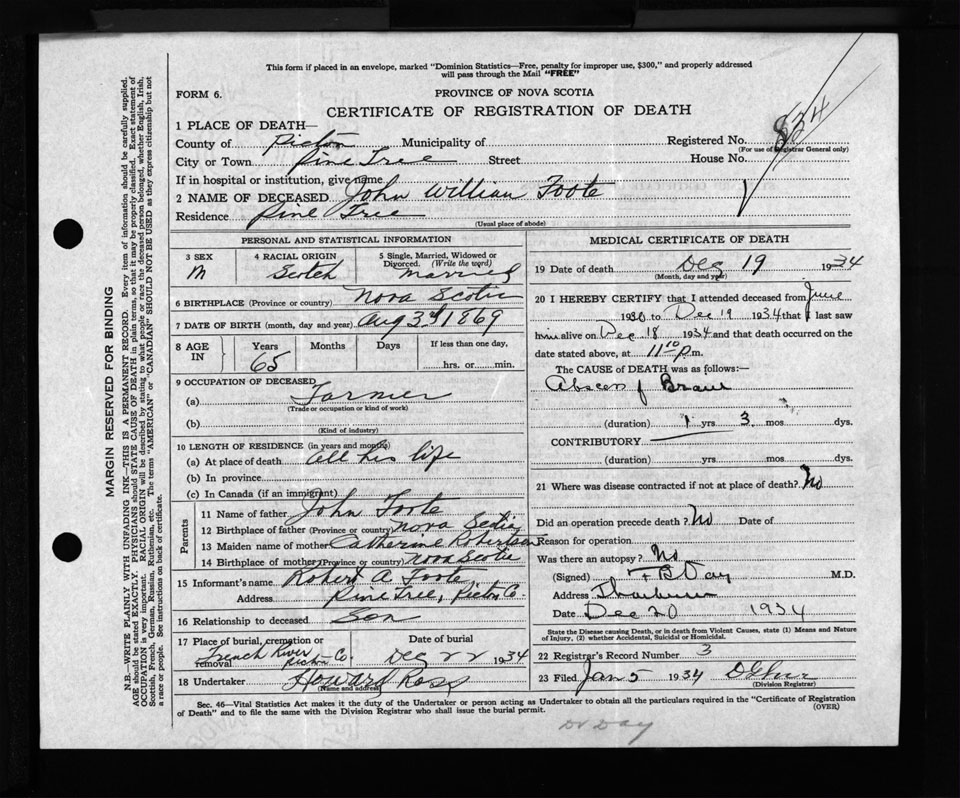 This form if placed in an envelope, marked "Dominion Statistics—Free, penalty for improper use, $300," and properly addressed
will pass through the Mail "FREE"
FORM 6.
PROVINCE OF NOVA SCOTIA
CERTIFICATE OF REGISTRATION OF DEATH
834
1 PLACE OF DEATH—
County of Pictou Municipality of Registered No.
(For use of Registrar General only)
City or Town Pine Tree Street House No.
If in hospital or institution, give name
2 NAME OF DECEASED John William Foote
Residence Pine Tree
(Usual place of abode)
PERSONAL AND STATISTICAL INFORMATION
3 SEX 4 RACIAL ORIGIN 5 Single, Married, Widowed or
Divorced. (Write the word)
M Scotch Married
6 BIRTHPLACE (Province or country) Nova Scotia
7 DATE OF BIRTH (month, day and year) Aug 3rd 1869
8 AGE IN Years Months Days If less than one day,
65 hrs. or min.
9 OCCUPATION OF DECEASED
(a) Farmer
(Trade or occupation or kind of work)
(b)
(Kind of industry)
10 LENGTH OF RESIDENCE (in years and months)
(a) At place of death all his life
(b) In province
(c) In Canada (if an immigrant)
Parents
11 Name of father John Foote
12 Birthplace of father (Province or country) Nova Scotia
13 Maiden name of mother Catherine Robertson
14 Birthplace of mother (Province or country) Nova Scotia
15 Informant's name Robert A Foote
Address Pine Tree, Pictou Co.
16 Relationship to deceased Son
17 Place of burial, cremation or removal Date of burial
French River
Pictou Co. Dec 22 1934
18 Undertaker Howard Ross
(Name and address)
MEDICAL CERTIFICATE OF DEATH
19 Date of death Dec 19 1934
(Month, day and year)
20 I HEREBY CERTIFY that I attended deceased from June
1930 to Dec 19 1934 that I last saw
him alive on Dec 18 1934 and that death occurred on the
date stated above, at 11 10 p m.
The CAUSE of DEATH was as follows:—
Abscess of Brain
(duration) 1 yrs 3 mos dys.
CONTRIBUTORY
(duration) yrs mos dys.
21 Where was disease contracted if not at place of death? No
Did an operation precede death? No Date of
Reason for operation
Was there an autopsy? No
(Signed) F B Day M.D.
Address Thorburn
Date Dec 20 1934
State the Disease causing Death, or in death from Violent Causes, state (1) Means and Nature
of Injury, (2) whether Accidental, Suicidal or Homicidal.
22 Registrar's Record Number 3
23 Filed Jan 5 1934
(Division Registrar)
Sec. 46—Vital Statistics Act makes it the duty of the Undertaker or person acting as Undertaker to obtain all the particulars required in the "Certificate of Registration
of Death" and to file the same with the Division Registrar who shall issue the burial permit.
(OVER)
Dr Day
MARGIN RESERVED FOR BINDING
N.B.—WRITE PLAINLY WITH UNFADING INK—THIS IS A PERMANENT RECORD. Every item of information should be carefully supplied.
AGE should be stated EXACTLY. PHYSICIANS should STATE CAUSE OF DEATH in plain terms, so that it may be properly classified. Exact statement of
OCCUPATION is very important. RACIAL ORIGIN will be described by stating to what people or race the deceased person belonged, whether English, Irish,
Scottish, French, German, Russian, Ruthenian, etc. The terms "AMERICAN" or "CANADIAN" SHOULD NOT BE USED as they express citizenship but not
a race or people. See instructions on back of certificate.